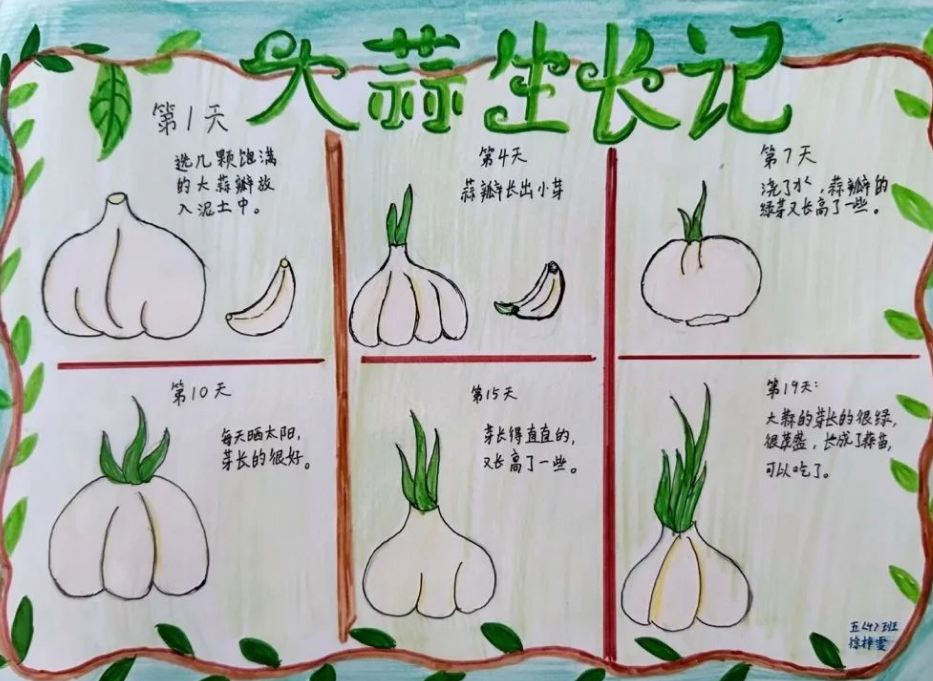 大蒜生长记
第1天
选几颗饱满
的大蒜瓣放
入泥土中。
第4天
蒜瓣长出小芽
第7天
浇了水，蒜瓣的
绿芽又长高了一些。
第10天
每天晒太阳，
芽长的很好。
第15天
芽长得直直的，
又长高了一些。
第19天：
大蒜的芽长的很绿，
很茂盛，长成了蒜苗，
可以吃了。
五〈4〉班
徐梓雯